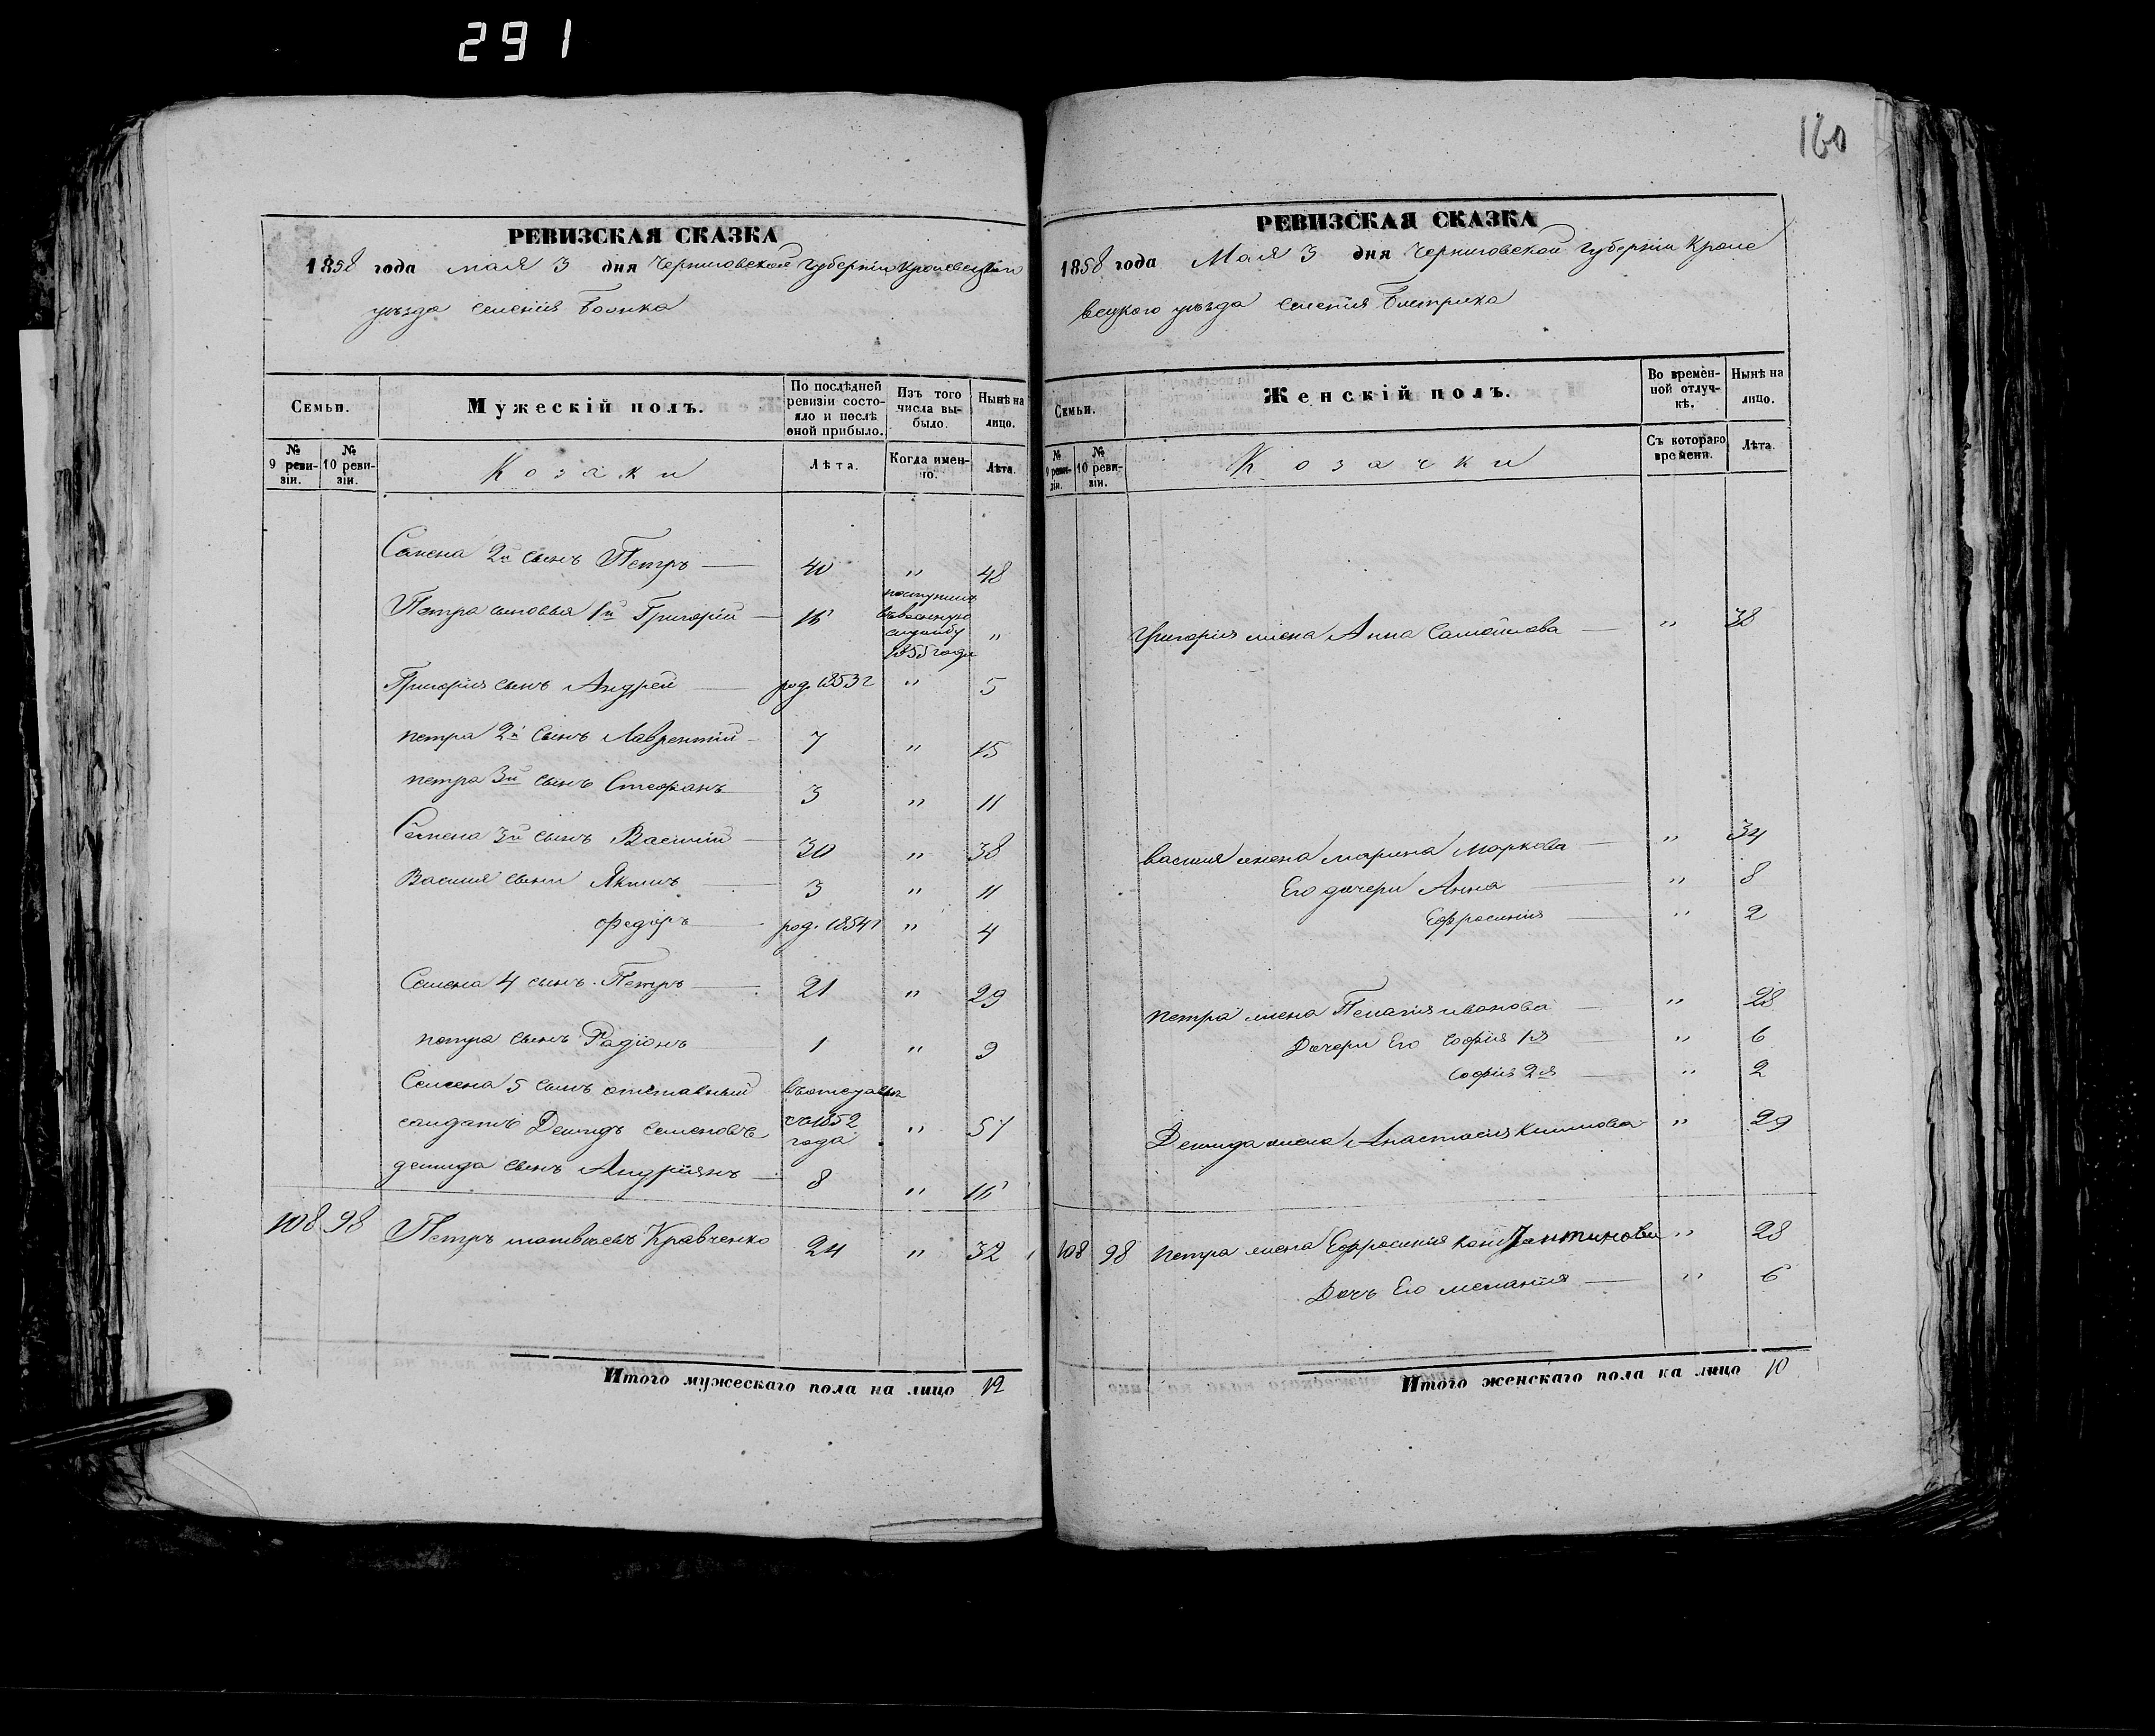 291
160
РЕВИЗСКАЯ СКАЗКА
1858 года мая 3 дня Черниговской Губерніи Кролевецкаго
уѣзда селенія
Семьи.
Мужескій полъ.
По послѣдней ревизіи состояло и послѣ оной прибыло.
Изъ того числа выбыло.
Нынѣ на лицо.
№ 9 ревизіи.
№ 10 ревизіи.
Козаки
Лѣта.
Когда именно.
Лѣта.
Семена 2й сынъ Петръ — 40 " 48
Петра сыновья 1й Григорій — 16 поступилъ въ военную службу 1855 года "
Григорія сынъ Андрей — род. 1853 г " 5
петра 2й сынъ Лаврентій — 7 " 15
петра 3й сынъ Стефанъ — 3 " 11
Семена 3й сынъ Василій — 30 " 38
Василія сыны Якимъ — 3 " 11
Федоръ — род. 1854 г " 4
Семена 4 сынъ Петръ — 21 " 29
петра сынъ Радіонъ 1 " 9
Семена 5 сынъ отставный въ отставке
солдатъ Демидъ Семеновъ съ 1852 года " 51
демида сынъ Андріянъ — 8 " 16
108 98 Петръ матвѣевъ Кравченко 24 " 32
Итого мужескаго пола на лицо 12
РЕВИЗСКАЯ СКАЗКА
1858 года Мая 3 дня Черниговской Губерніи Кроле
вецкого уѣзда селенія Быстрика
Семьи.
Женскій полъ.
Во временной отлучкѣ.
Нынѣ на лицо.
№ 9 ревизіи.
№ 10 ревизіи.
Козачки
Съ котораго времени.
Лѣта.
Григорія жена Анна Самойлова — " 38
василія жена марина маркова — " 34
Его дочери Анна — " 8
Ефросинія — " 2
петра жена Пелагія иванова — " 28
Дочери Его Софія 1я — " 6
Софія 2я — " 2
Демида жена Анастасія Климова " 29
108 98 петра жена Ефросинія Константинова " 28
Дочь Его меланія — " 6
Итого женскаго пола на лицо 10